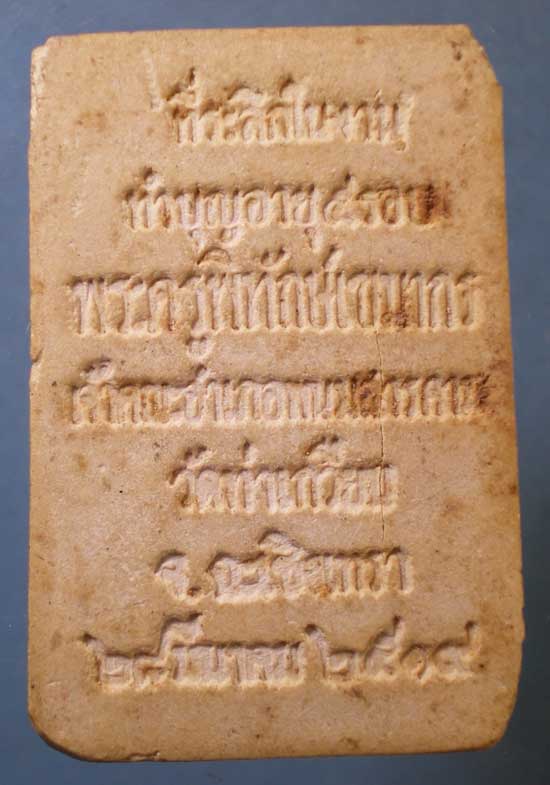 ที่ระลึกในงาน
ทำบุญอายุ ๕ รอบ
พระครูพิทักษ์เขมากร
เจ้าคณะอำเภอพนมสารคาม
วัดท่าเกวียน
จ. ฉะเชิงเทรา
มีนาคม ๒๕๑๔